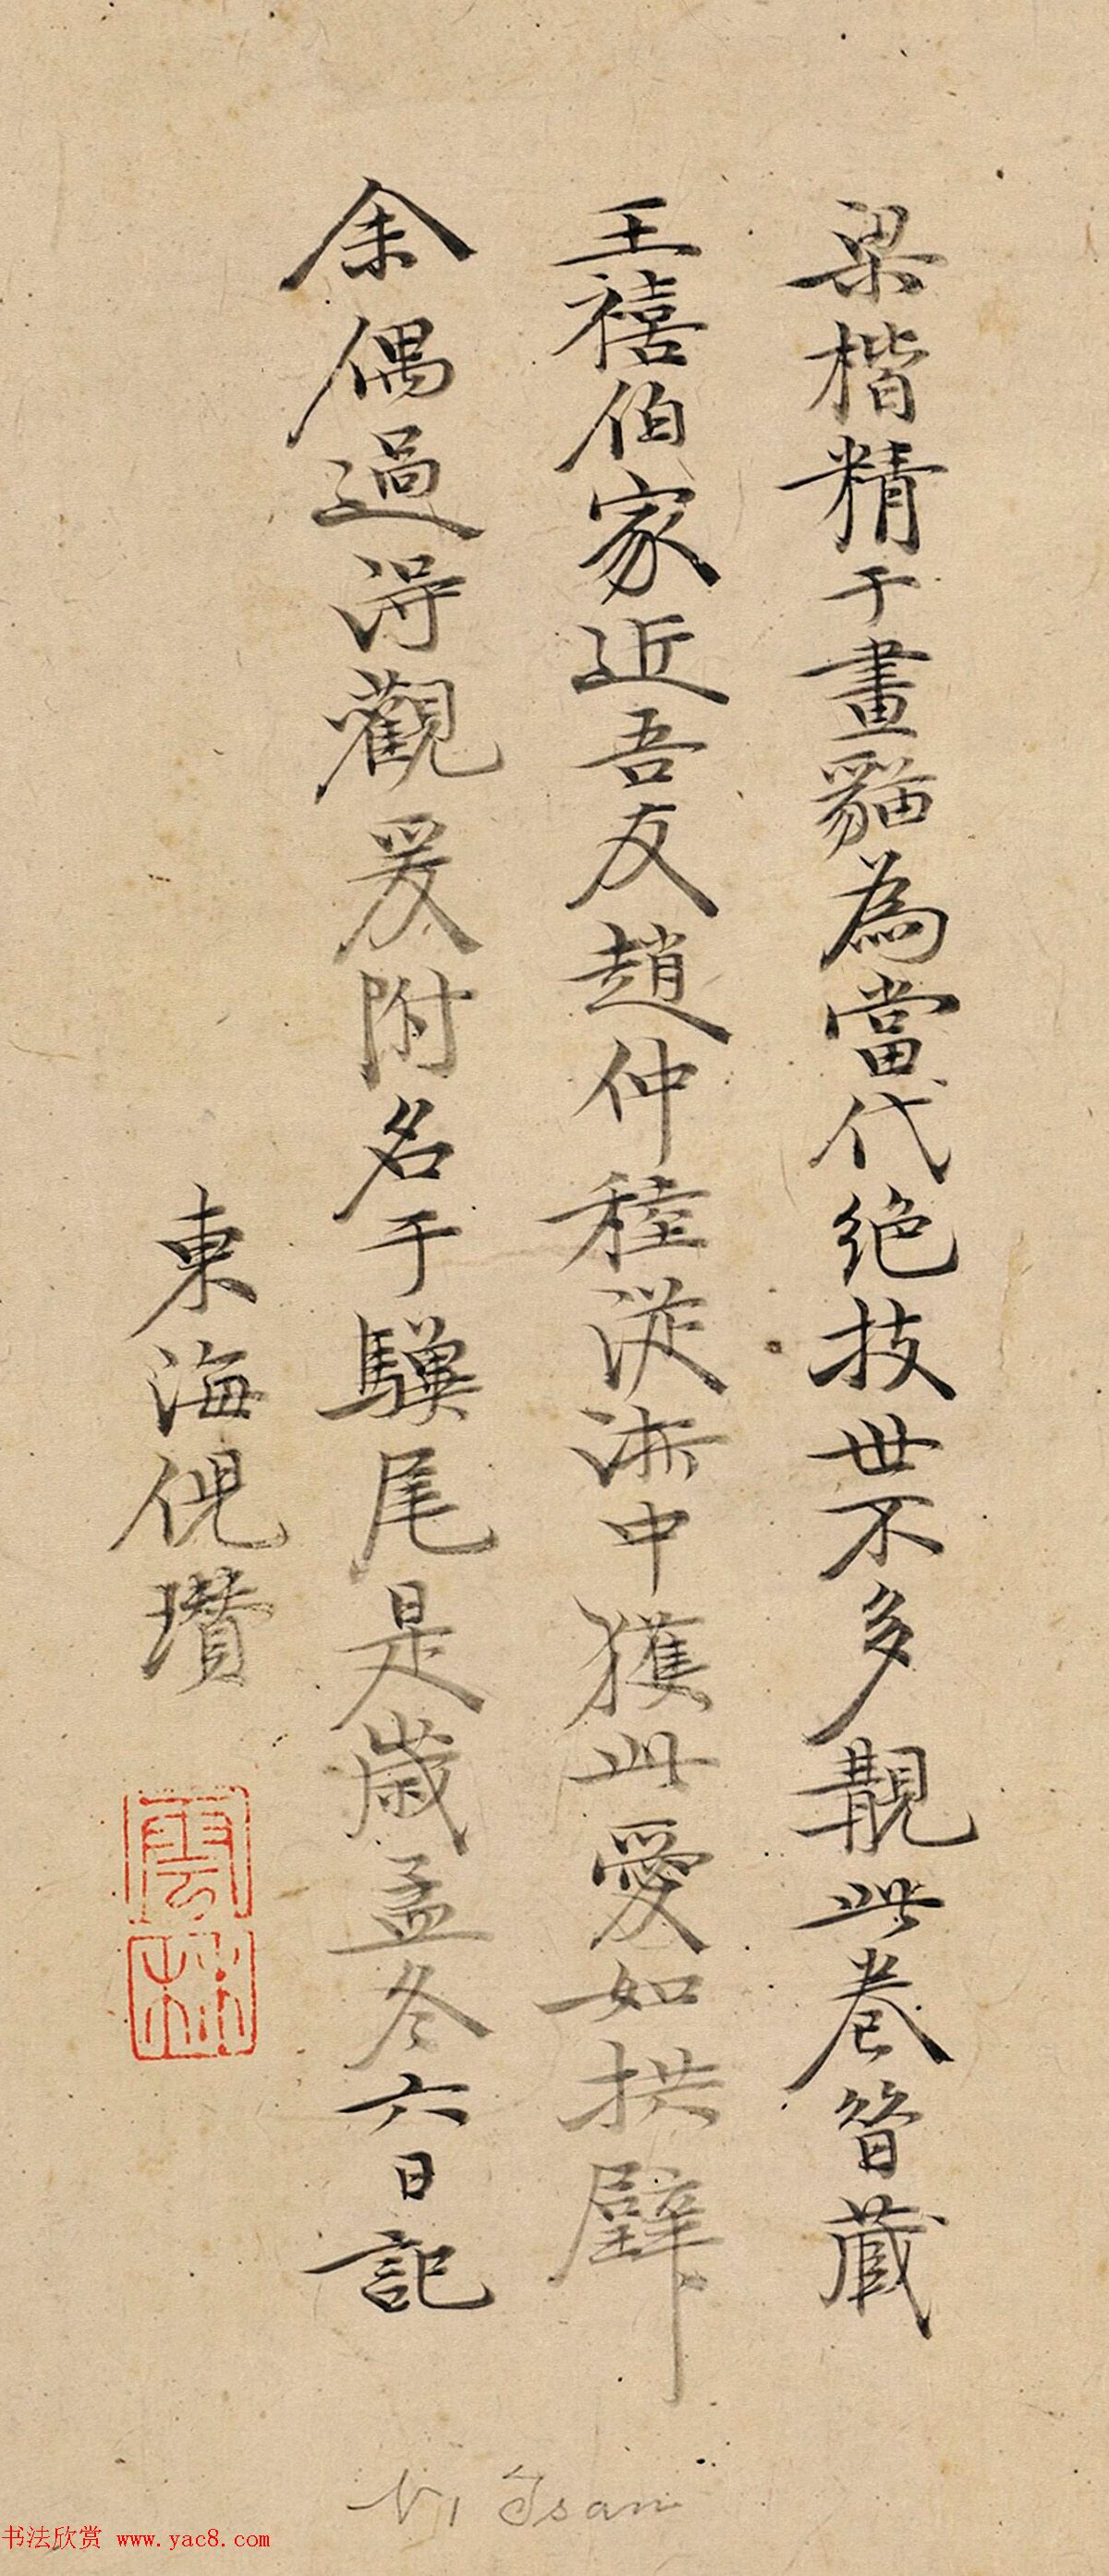 梁楷精于畫貓為當代绝技世不多覩此卷管藏
王禧伯家近吾友趙仲穆從浙中獲此愛如拱璧
余偶過得觀爰附名于驥尾是歲孟冬六日記
東海倪瓚
雲林
Ni Tsan
书法欣赏 www.yac8.com